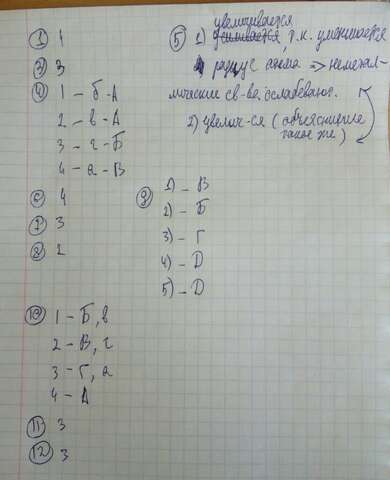 1 1
2 3
4 1 - б - А
2 - в - А
3 - г - Б
4 - а - В
6 4
7 3
8 2
увеличивается
5 1) усиливается, т.к. уменьшается
радиус атома => неметал-
лические св-ва ослабевают.
2) увелич-ся (объяснение
такое же)
9 1) - В
2) - Б
3) - Г
4) - D
5) - D
10 1 - Б, в
2 - В, г
3 - Г, а
4 - А
11 3
12 3